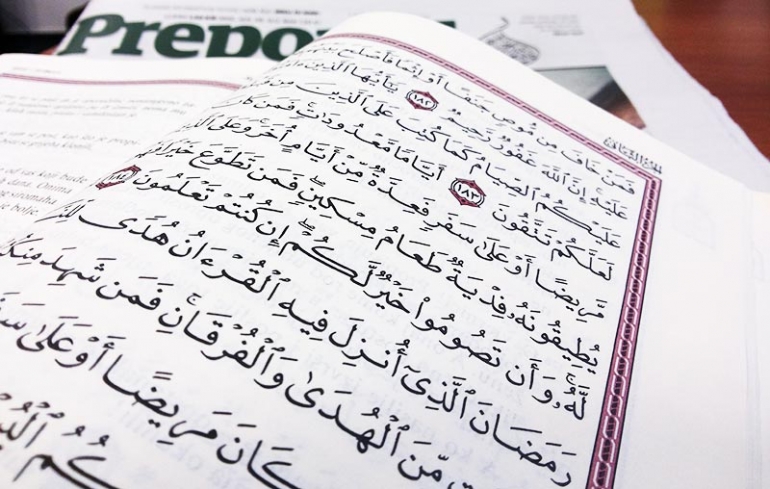 Prepo
فَمَنْ خَافَ مِن مُّوصٍ جَنَفًا أَوْ إِثْمًا فَأَصْلَحَ
عَلَيْهِ إِنَّ ٱللَّهَ غَفُورٌ رَّحِيمٌ ١٨٢ يَٰٓأَيُّهَا ٱلَّذِينَ
عَلَيْكُمُ ٱلصِّيَامُ كَمَا كُتِبَ عَلَى ٱلَّذِينَ مِن
لَعَلَّكُمْ تَتَّقُونَ ١٨٣ أَيَّامًا مَّعْدُودَٰتٍ فَمَن كَانَ
مَّرِيضًا أَوْ عَلَىٰ سَفَرٍ فَعِدَّةٌ مِّنْ أَيَّامٍ أُخَرَ وَعَلَى
يُطِيقُونَهُۥ فِدْيَةٌ طَعَامُ مِسْكِينٍ فَمَن تَطَوَّعَ خَيْرًا
لَّهُۥ وَأَن تَصُومُوا۟ خَيْرٌ لَّكُمْ إِن كُنتُمْ تَعْلَمُونَ ١٨٤
رَمَضَانَ ٱلَّذِىٓ أُنزِلَ فِيهِ ٱلْقُرْءَانُ هُدًى
مِّنَ ٱلْهُدَىٰ وَٱلْفُرْقَانِ فَمَن شَهِدَ
كَانَ مَرِيضًا أَوْ عَلَىٰ
bude
dana. Onima
bolje